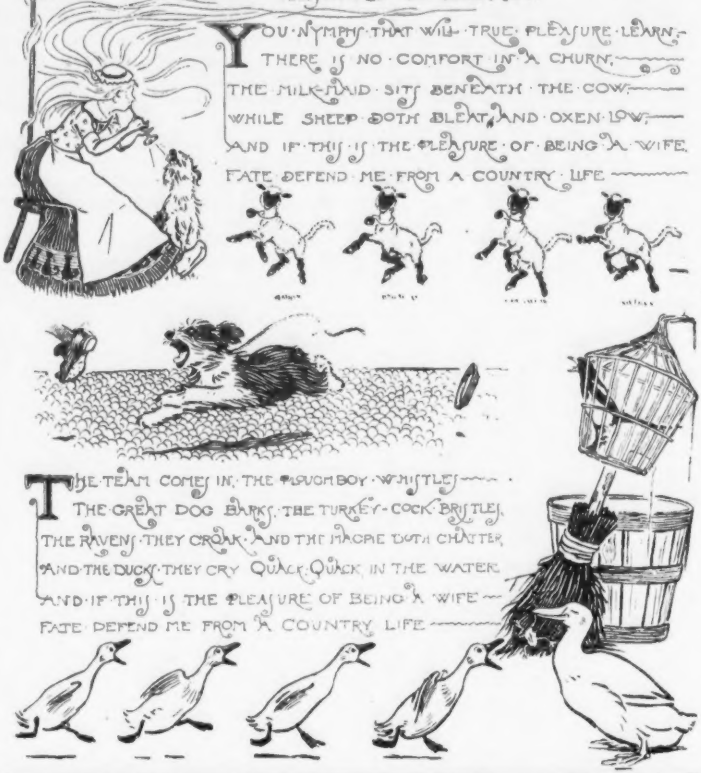 YOU NYMPHS THAT WILL TRUE PLEASURE LEARN
THERE IS NO COMFORT IN A CHURN,
THE MILK-MAID SITS BENEATH THE COW,
WHILE SHEEP DOTH BLEAT, AND OXEN LOW,
AND IF THIS IS THE PLEASURE OF BEING A WIFE,
FATE DEFEND ME FROM A COUNTRY LIFE
THE TEAM COMES IN, THE PLOUGHBOY WHISTLES
THE GREAT DOG BARKS, THE TURKEY-COCK BRISTLES,
THE RAVENS THEY CROAK AND THE MAGPIE DOTH CHATTER
AND THE DUCKS THEY CRY QUACK, QUACK, IN THE WATER
AND IF THIS IS THE PLEASURE OF BEING A WIFE
FATE DEFEND ME FROM A COUNTRY LIFE